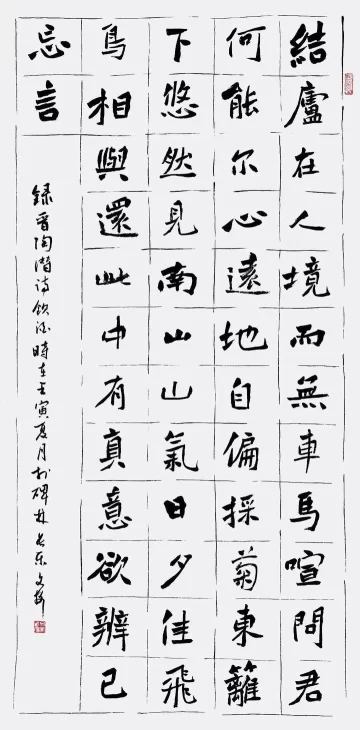 結廬在人境而無車馬喧問君
何能尔心遠地自偏採菊東籬
下悠然見南山山氣日夕佳飛
鳥相與還此中有真意欲辨已
忘言
録晋陶潛詩飲酒時在壬寅夏月於碑林